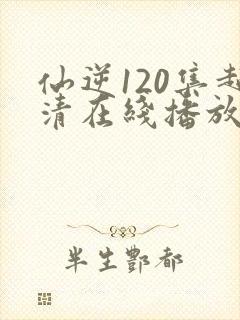 仙逆120集超
清在綫播放
半生酆都